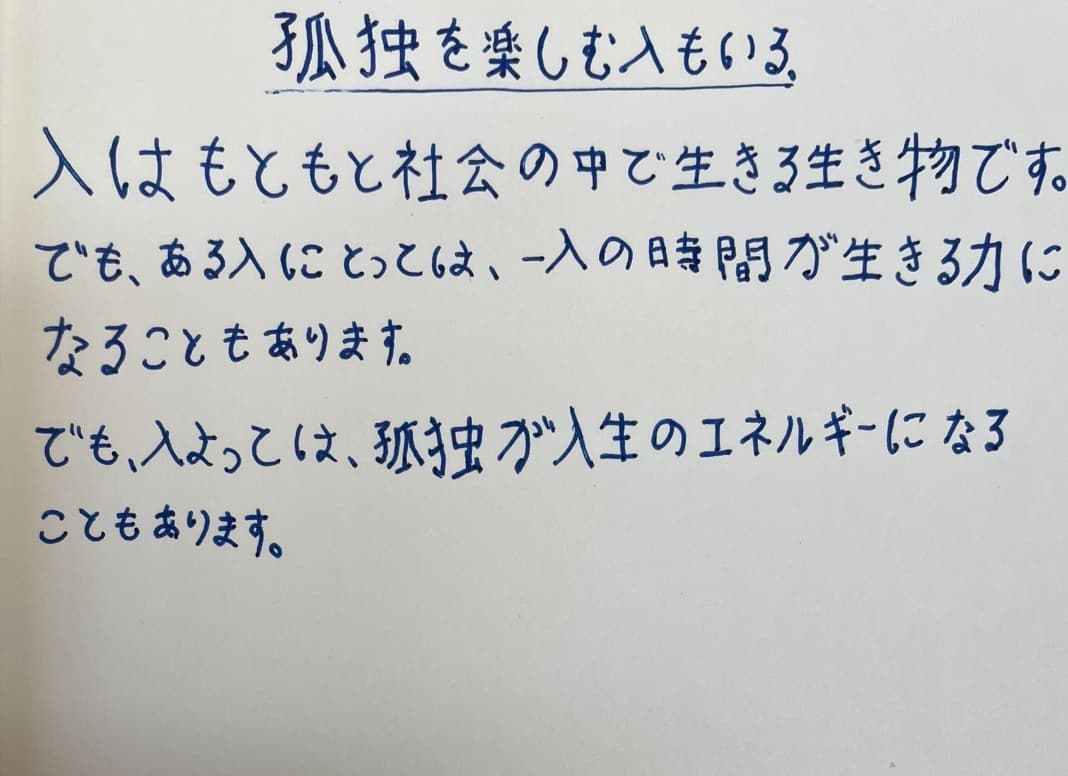 孤独を楽しむ入もいる、
入はもともと社会の中で生きる生き物です。
でも、ある入にとっては、一入の時間が生きる力に
なることもあります。
でも、入よっては、孤独が入生のエネルギーになる
こともあります。